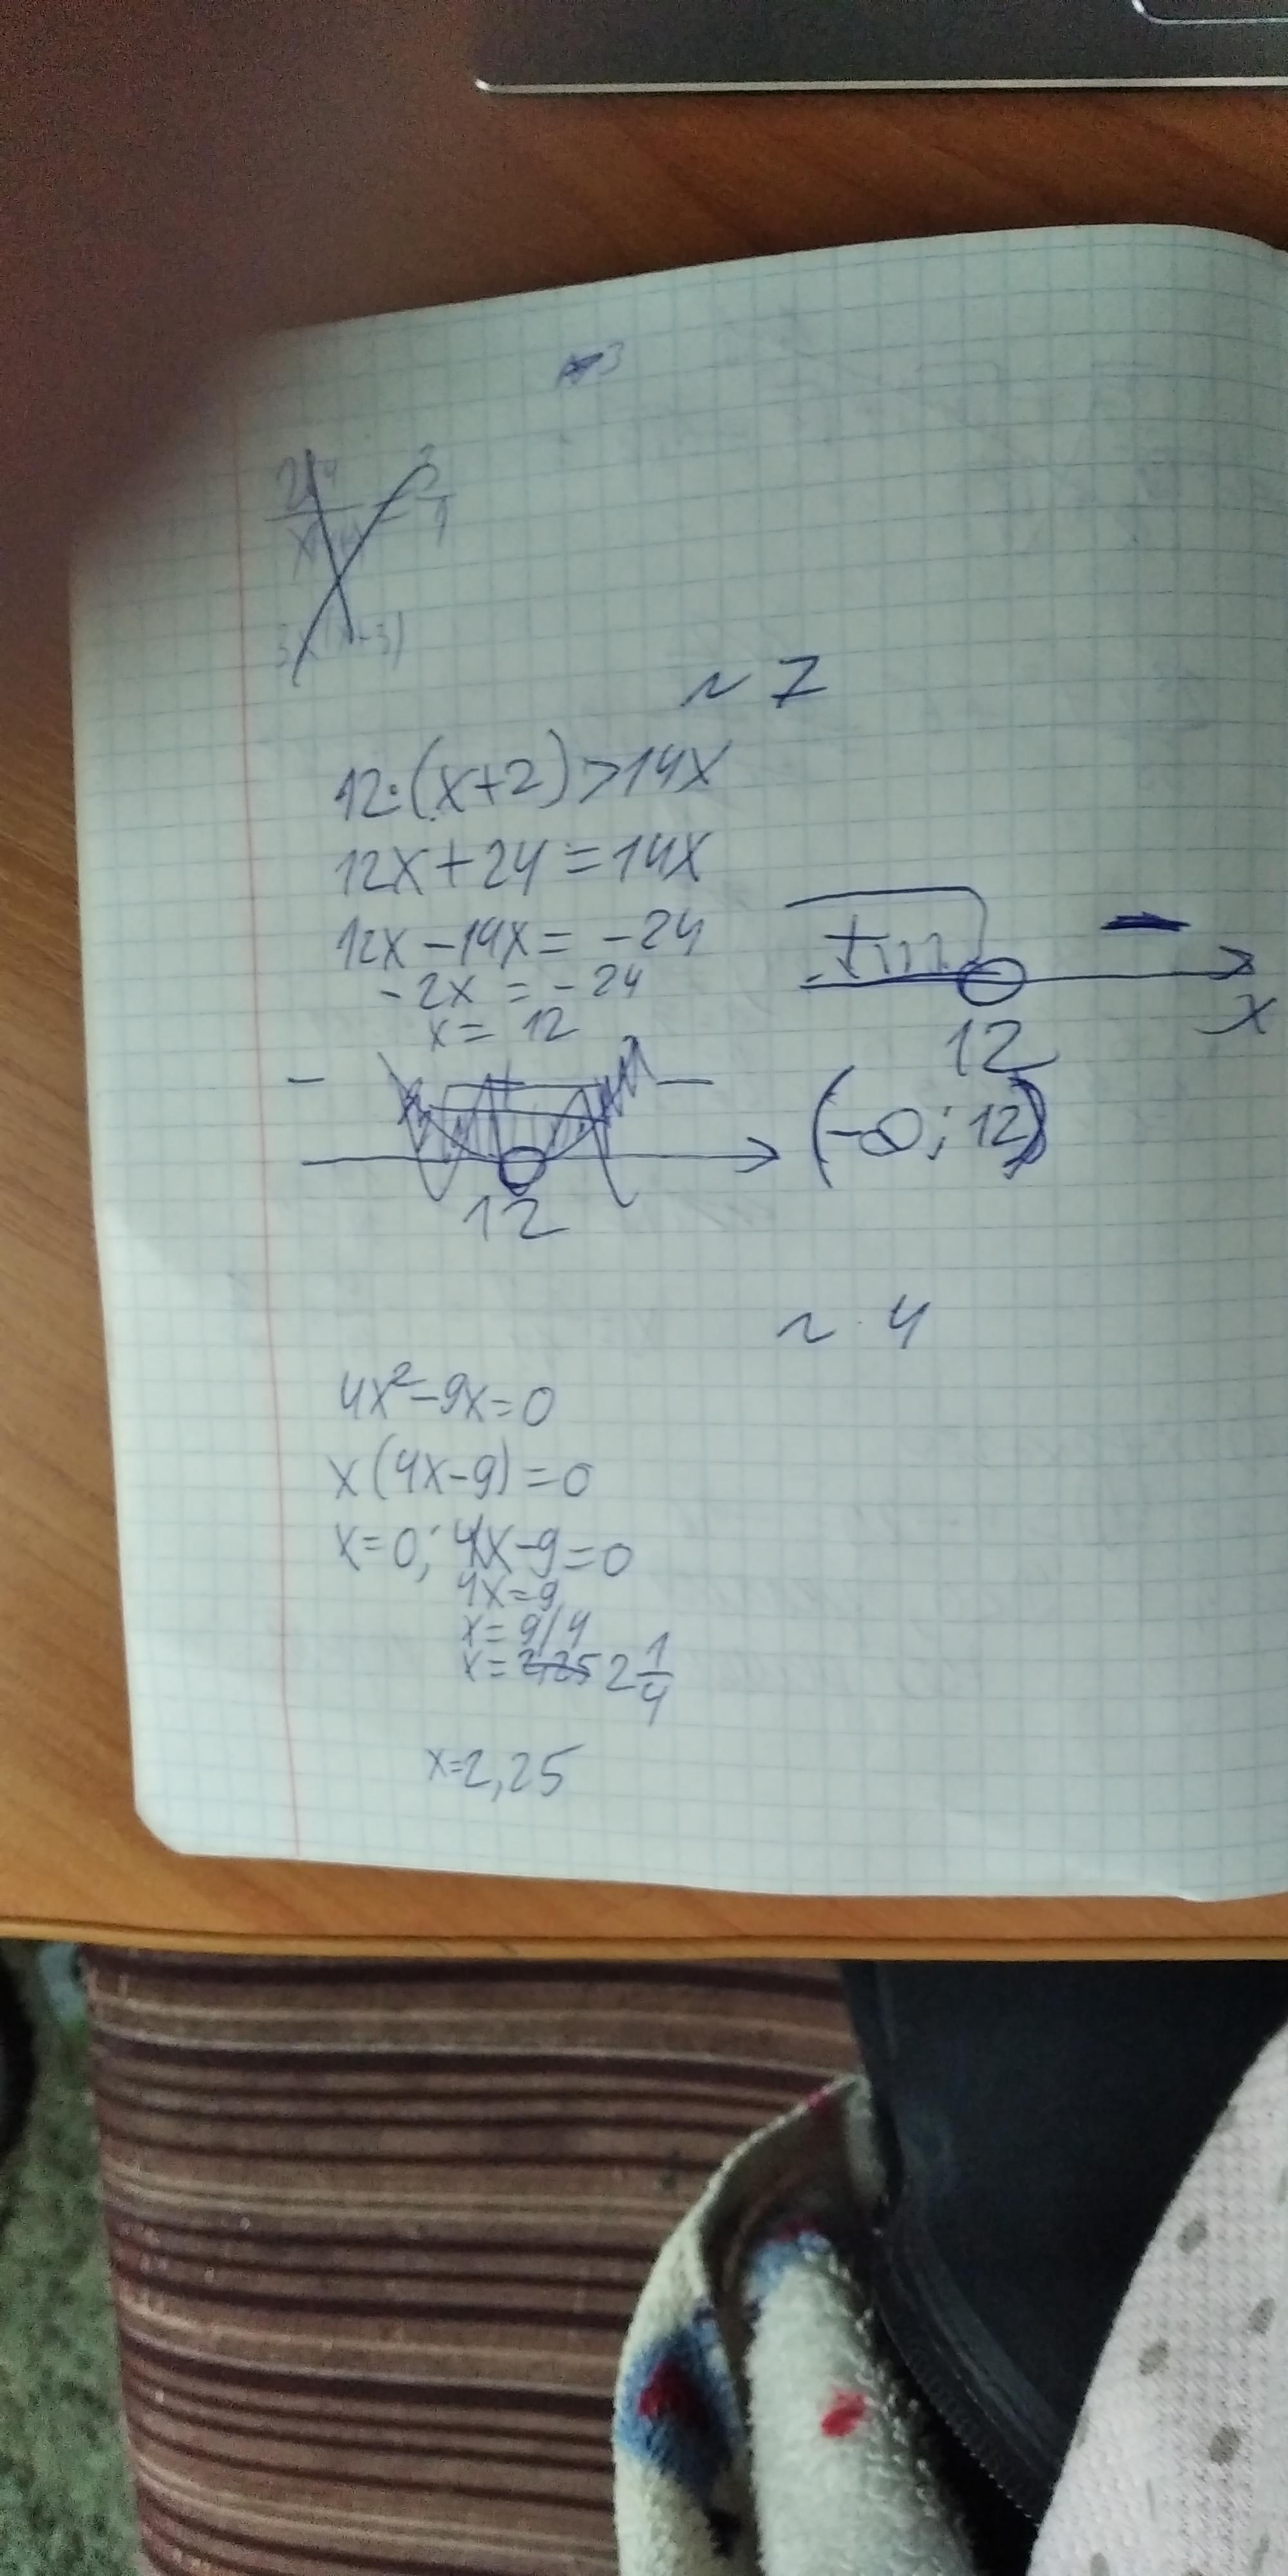 3
3
~ 7
12·(x+2)>14x
12x+24=14x
12x-14x= -24
-2x = -24
x= 12
+ −
12 x
− −
12
(-∞; 12)
~ 4
4x²-9x=0
x(4x-9)=0
x=0; 4x-9=0
4x=9
x= 9/4
x= 2,25 2 1/4
x=2,25